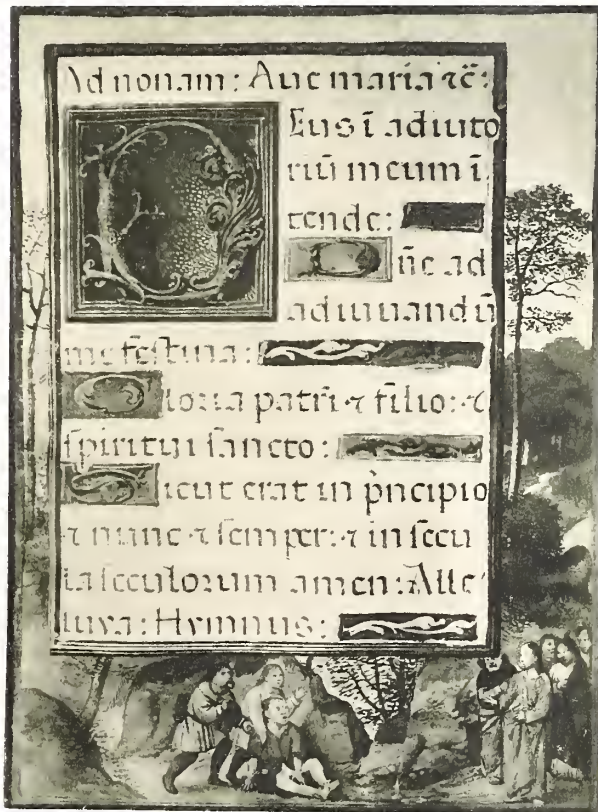 Ad nonam: Aue maria ⁊c̄:
Eus ī adiuto
riū meum ī
tende:
Dn̄e ad
adiuuandū
me festina:
Gloria patri ⁊ filio: ⁊
ſpiritui ſancto:
Sicut erat in pͥncipio
⁊ nunc ⁊ ſemper: ⁊ in ſecu
la ſeculorum amen: Alle
luya: Hymnus: